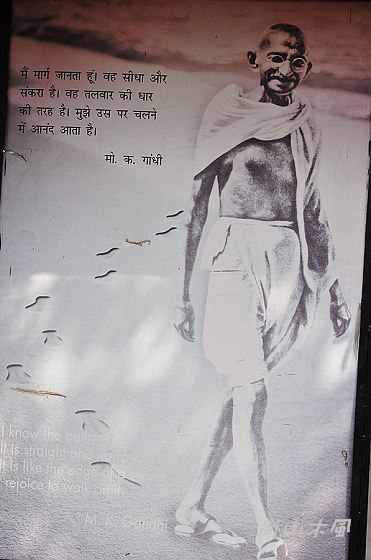 मैं मार्ग जानता हूं। वह सीधा और
संकरा है। वह तलवार की धार
की तरह है। मुझे उस पर चलने
में आनंद आता है।
मो. क. गांधी
I know the path.
It is straight and
It is like the edge of a
rejoice to walk on it.
M. K. Gandhi
木風